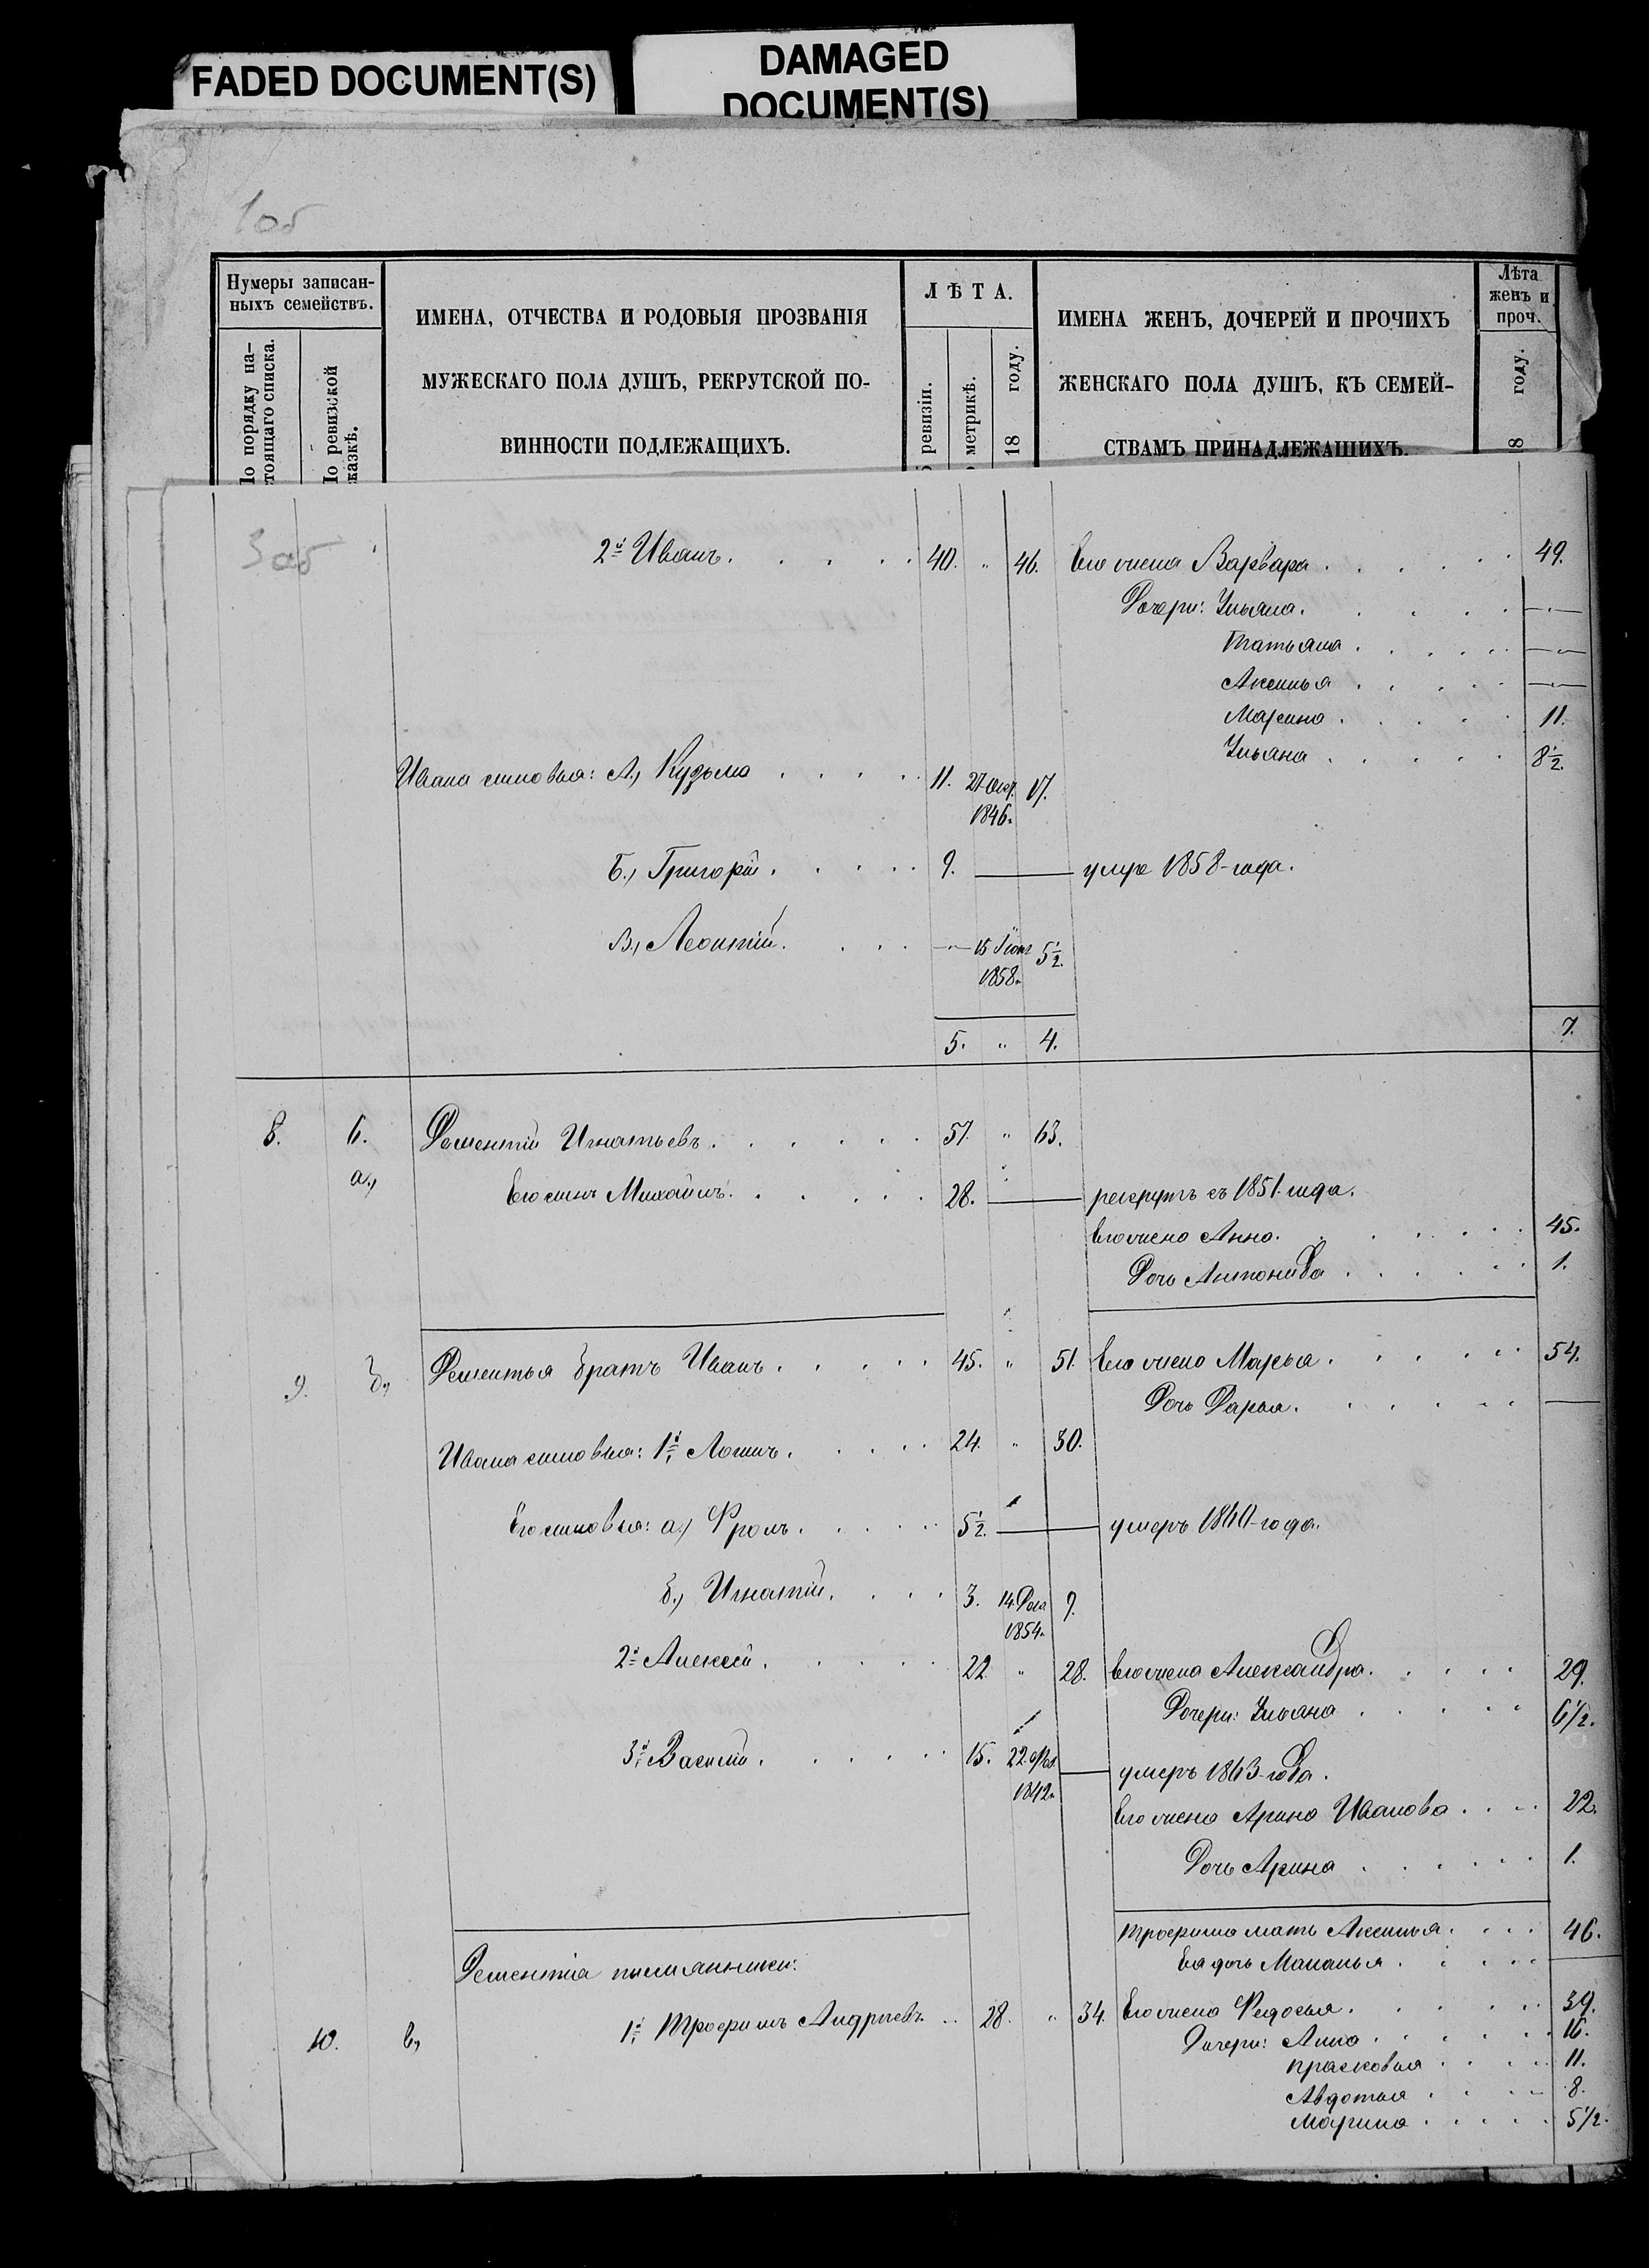 FADED DOCUMENT(S)
DAMAGED
DOCUMENT(S)
1об
Нумеры записан-
ныхъ семействъ.
По порядку на-
стоящаго списка.
По ревизской
сказкѣ.
ИМЕНА, ОТЧЕСТВА И РОДОВЫЯ ПРОЗВАНІЯ
МУЖЕСКАГО ПОЛА ДУШЪ, РЕКРУТСКОЙ ПО-
ВИННОСТИ ПОДЛЕЖАЩИХЪ.
Л Ѣ Т А.
ревизіи.
метрикѣ.
18 году.
ИМЕНА ЖЕНЪ, ДОЧЕРЕЙ И ПРОЧИХЪ
ЖЕНСКАГО ПОЛА ДУШЪ, КЪ СЕМЕЙ-
СТВАМЪ ПРИНАДЛЕЖАЩИХЪ.
Лѣта
женъ и
проч.
8 году.
3об
2й Иванъ. 40. " 46. Его жена Варвара 49.
Дочери: Ульяна. —"—
Татьяна —"—
Аксинья —"—
Марина 11.
Ульяна 8½.
Ивана сыновья: А., Кузьма 11. 27 Окт. 1846. 17.
Б., Григорій 9. — умре 1858-года.
В., Леонтій. —"— 15 1858. 5½.
5. " 4. 7.
8. 6. Дементій Игнатьевъ 57. " 63.
а., Его сынъ Михайлъ. 28. — рекрутъ съ 1851-года.
Его жена Анна. 45.
Дочь Антонида 1.
9. б., Дементья братъ Иванъ 45. " 51. Его жена Марья 54.
Дочь Дарья. —
Ивана сыновья: 1й, Логинъ. 24. " 30.
Его сыновья: а.) Фролъ 5½. — умеръ 1860-года.
б., Игнатій. 3. 14. 1854. 9.
2й Алексей 22 " 28. Его жена Александра 29.
Дочери: Ульяна 6½.
3й, Василій 15. 22. 1842. — умеръ 1863-года.
Его жена Арина Иванова 22.
Дочь Арина 1.
Трофима мать Аксинья 46.
Ея дочь Маланья —
Дементія племянники:
10. в, 1й, Трофимъ Андреевъ 28. " 34. Его жена Федосья 39.
Дочери: Анна 16.
Прасковья 11.
Авдотья 8.
Марина 5½.